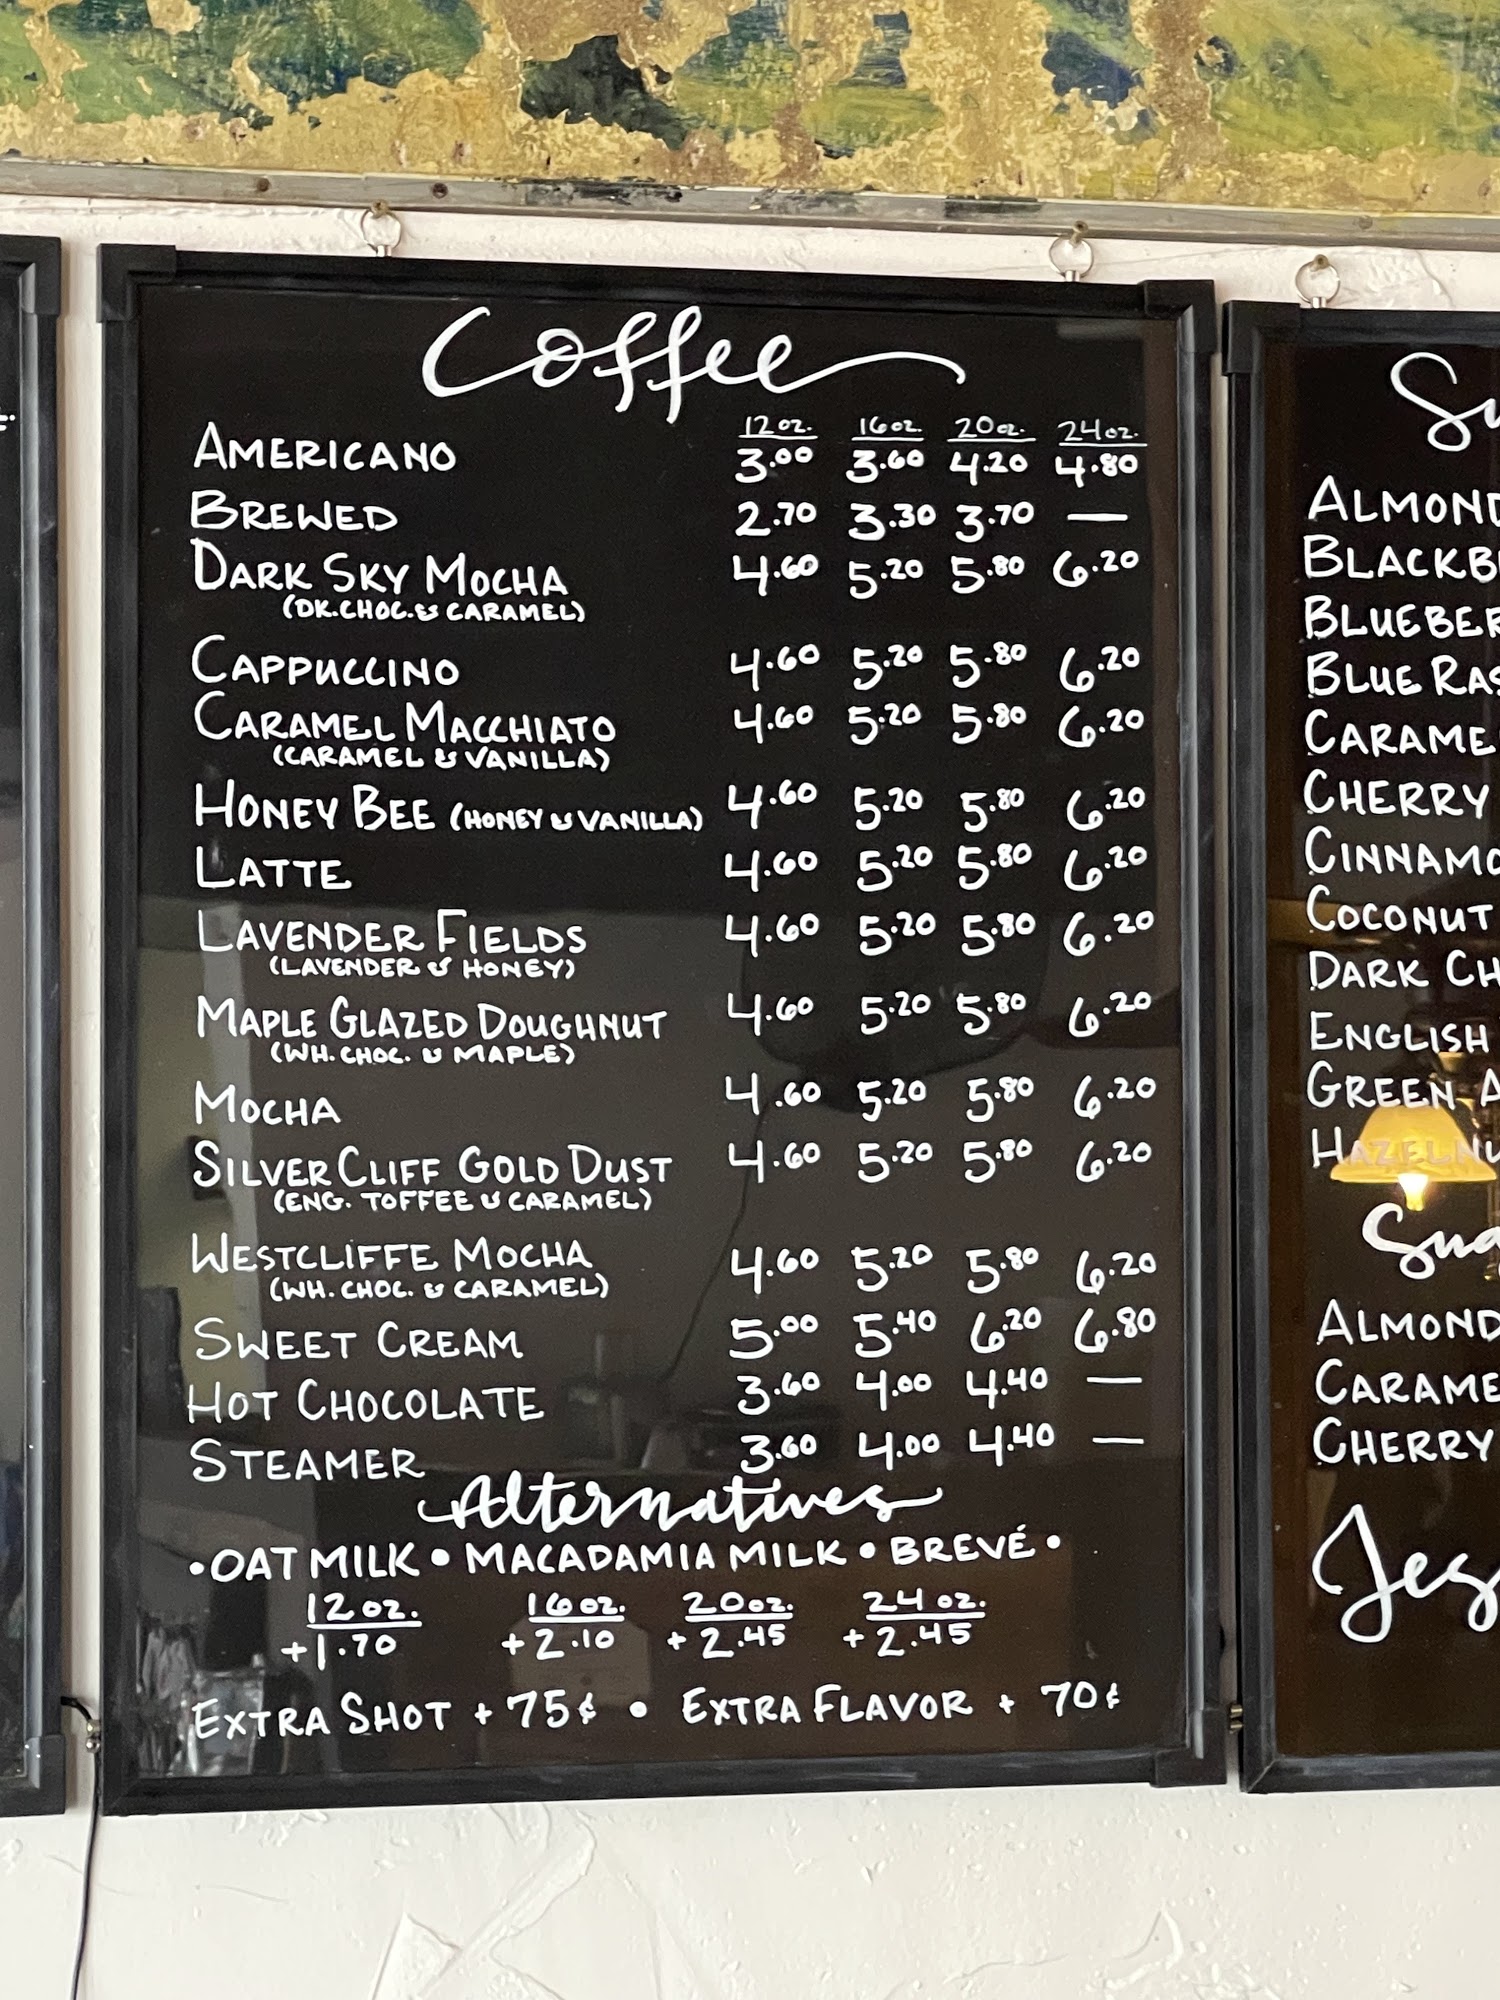 Coffee
12 oz. 16 oz. 20 oz. 24 oz.
AMERICANO 3.00 3.60 4.20 4.80
BREWED 2.70 3.30 3.70 —
DARK SKY MOCHA 4.60 5.20 5.80 6.20
(DK. CHOC. & CARAMEL)
CAPPUCCINO 4.60 5.20 5.80 6.20
CARAMEL MACCHIATO 4.60 5.20 5.80 6.20
(CARAMEL & VANILLA)
HONEY BEE (HONEY & VANILLA) 4.60 5.20 5.80 6.20
LATTE 4.60 5.20 5.80 6.20
LAVENDER FIELDS 4.60 5.20 5.80 6.20
(LAVENDER & HONEY)
MAPLE GLAZED DOUGHNUT 4.60 5.20 5.80 6.20
(WH. CHOC. & MAPLE)
MOCHA 4.60 5.20 5.80 6.20
SILVER CLIFF GOLD DUST 4.60 5.20 5.80 6.20
(ENG. TOFFEE & CARAMEL)
WESTCLIFFE MOCHA 4.60 5.20 5.80 6.20
(WH. CHOC. & CARAMEL)
SWEET CREAM 5.00 5.40 6.20 6.80
HOT CHOCOLATE 3.60 4.00 4.40 —
STEAMER 3.60 4.00 4.40 —
Alternatives
• OAT MILK • MACADAMIA MILK • BREVÉ •
12 oz. 16 oz. 20 oz. 24 oz.
+1.70 +2.10 +2.45 +2.45
EXTRA SHOT + 75¢ • EXTRA FLAVOR + 70¢
ALMOND
CHERRY
COCONUT
DARK
ENGLISH
GREEN
ALMOND
CHERRY